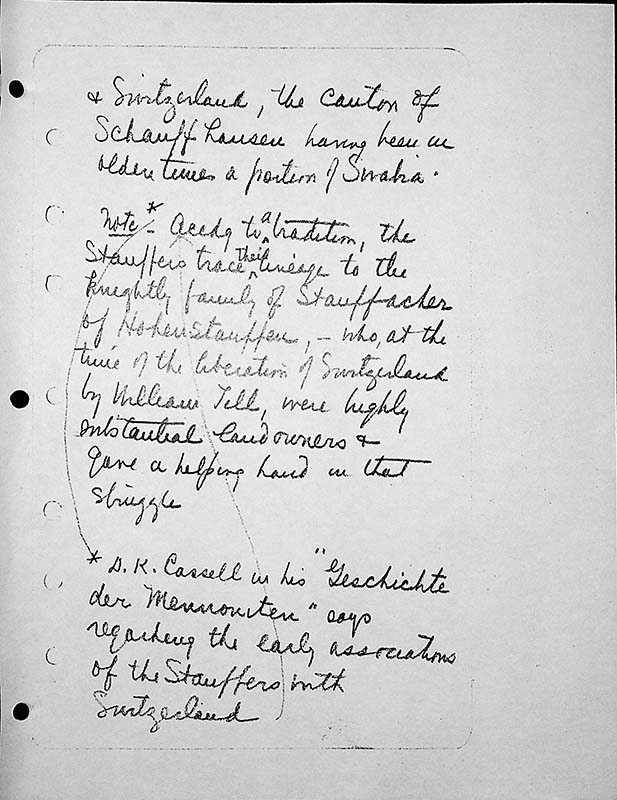 & Switzerland, the canton of
Schauffhausen having been in
olden times a portion of Swabia.
Note* - Accdg to a tradition, the
Stauffers trace their lineage to the
knightly family of Stauffacher
of Hohenstauffen, - who, at the
time of the liberation of Switzerland
by William Tell, were highly
substantial landowners &
gave a helping hand in that
struggle
* D. K. Cassell in his "Geschichte
der Mennoniten" says
regarding the early associations
of the Stauffers with
Switzerland